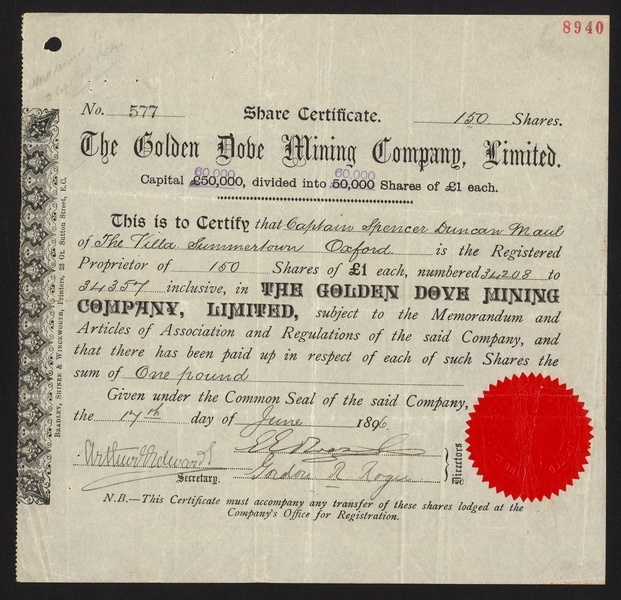 8940
No. 577 Share Certificate. 150 Shares.
The Golden Dove Mining Company, Limited.
60,000 60,000
Capital £50,000, divided into 50,000 Shares of £1 each.
This is to Certify that Captain Spencer Duncan Maul
of The Villa Summertown Oxford is the Registered
Proprietor of 150 Shares of £1 each, numbered 34208 to
34357 inclusive, in THE GOLDEN DOVE MINING
COMPANY, LIMITED, subject to the Memorandum and
Articles of Association and Regulations of the said Company, and
that there has been paid up in respect of each of such Shares the
sum of One pound
Given under the Common Seal of the said Company,
the 17th day of June 1896.
Arthur Edwards
Secretary.
Gordon R
Directors
N.B.—This Certificate must accompany any transfer of these shares lodged at the
Company's Office for Registration.
BRADLEY, SHINER & WINCKWORTH, Printers, 23 Gt. Sutton Street, E.C.